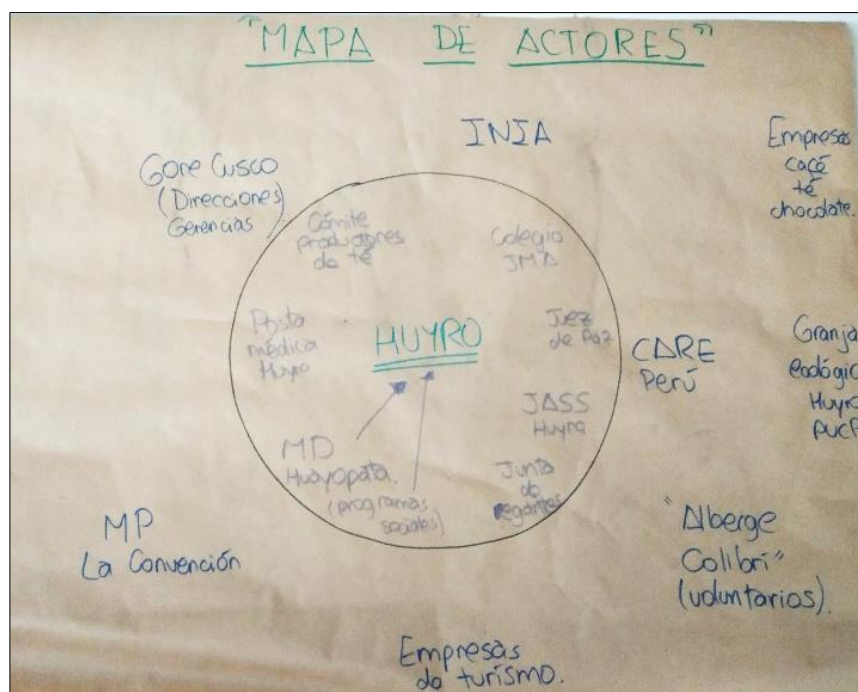 "MAPA DE ACTORES"
INIA
Empresas
cacé
té
chocolate.
Gore Cusco
(Direcciones)
Gerencias)
Cómite
productores
de té
Colegio
JMA
Posta
médica
Huyro
HUYRO
Juez
de Paz
CARE
Perú
Granja
ecológic
Huyro
PUCP
JASS
Huyro
MD
Huayopata.
(programas
sociales)
Junta
de
regantes
MP
La Convención
"Alberge
Colibrí"
(voluntarios).
Empresas
de turismo.